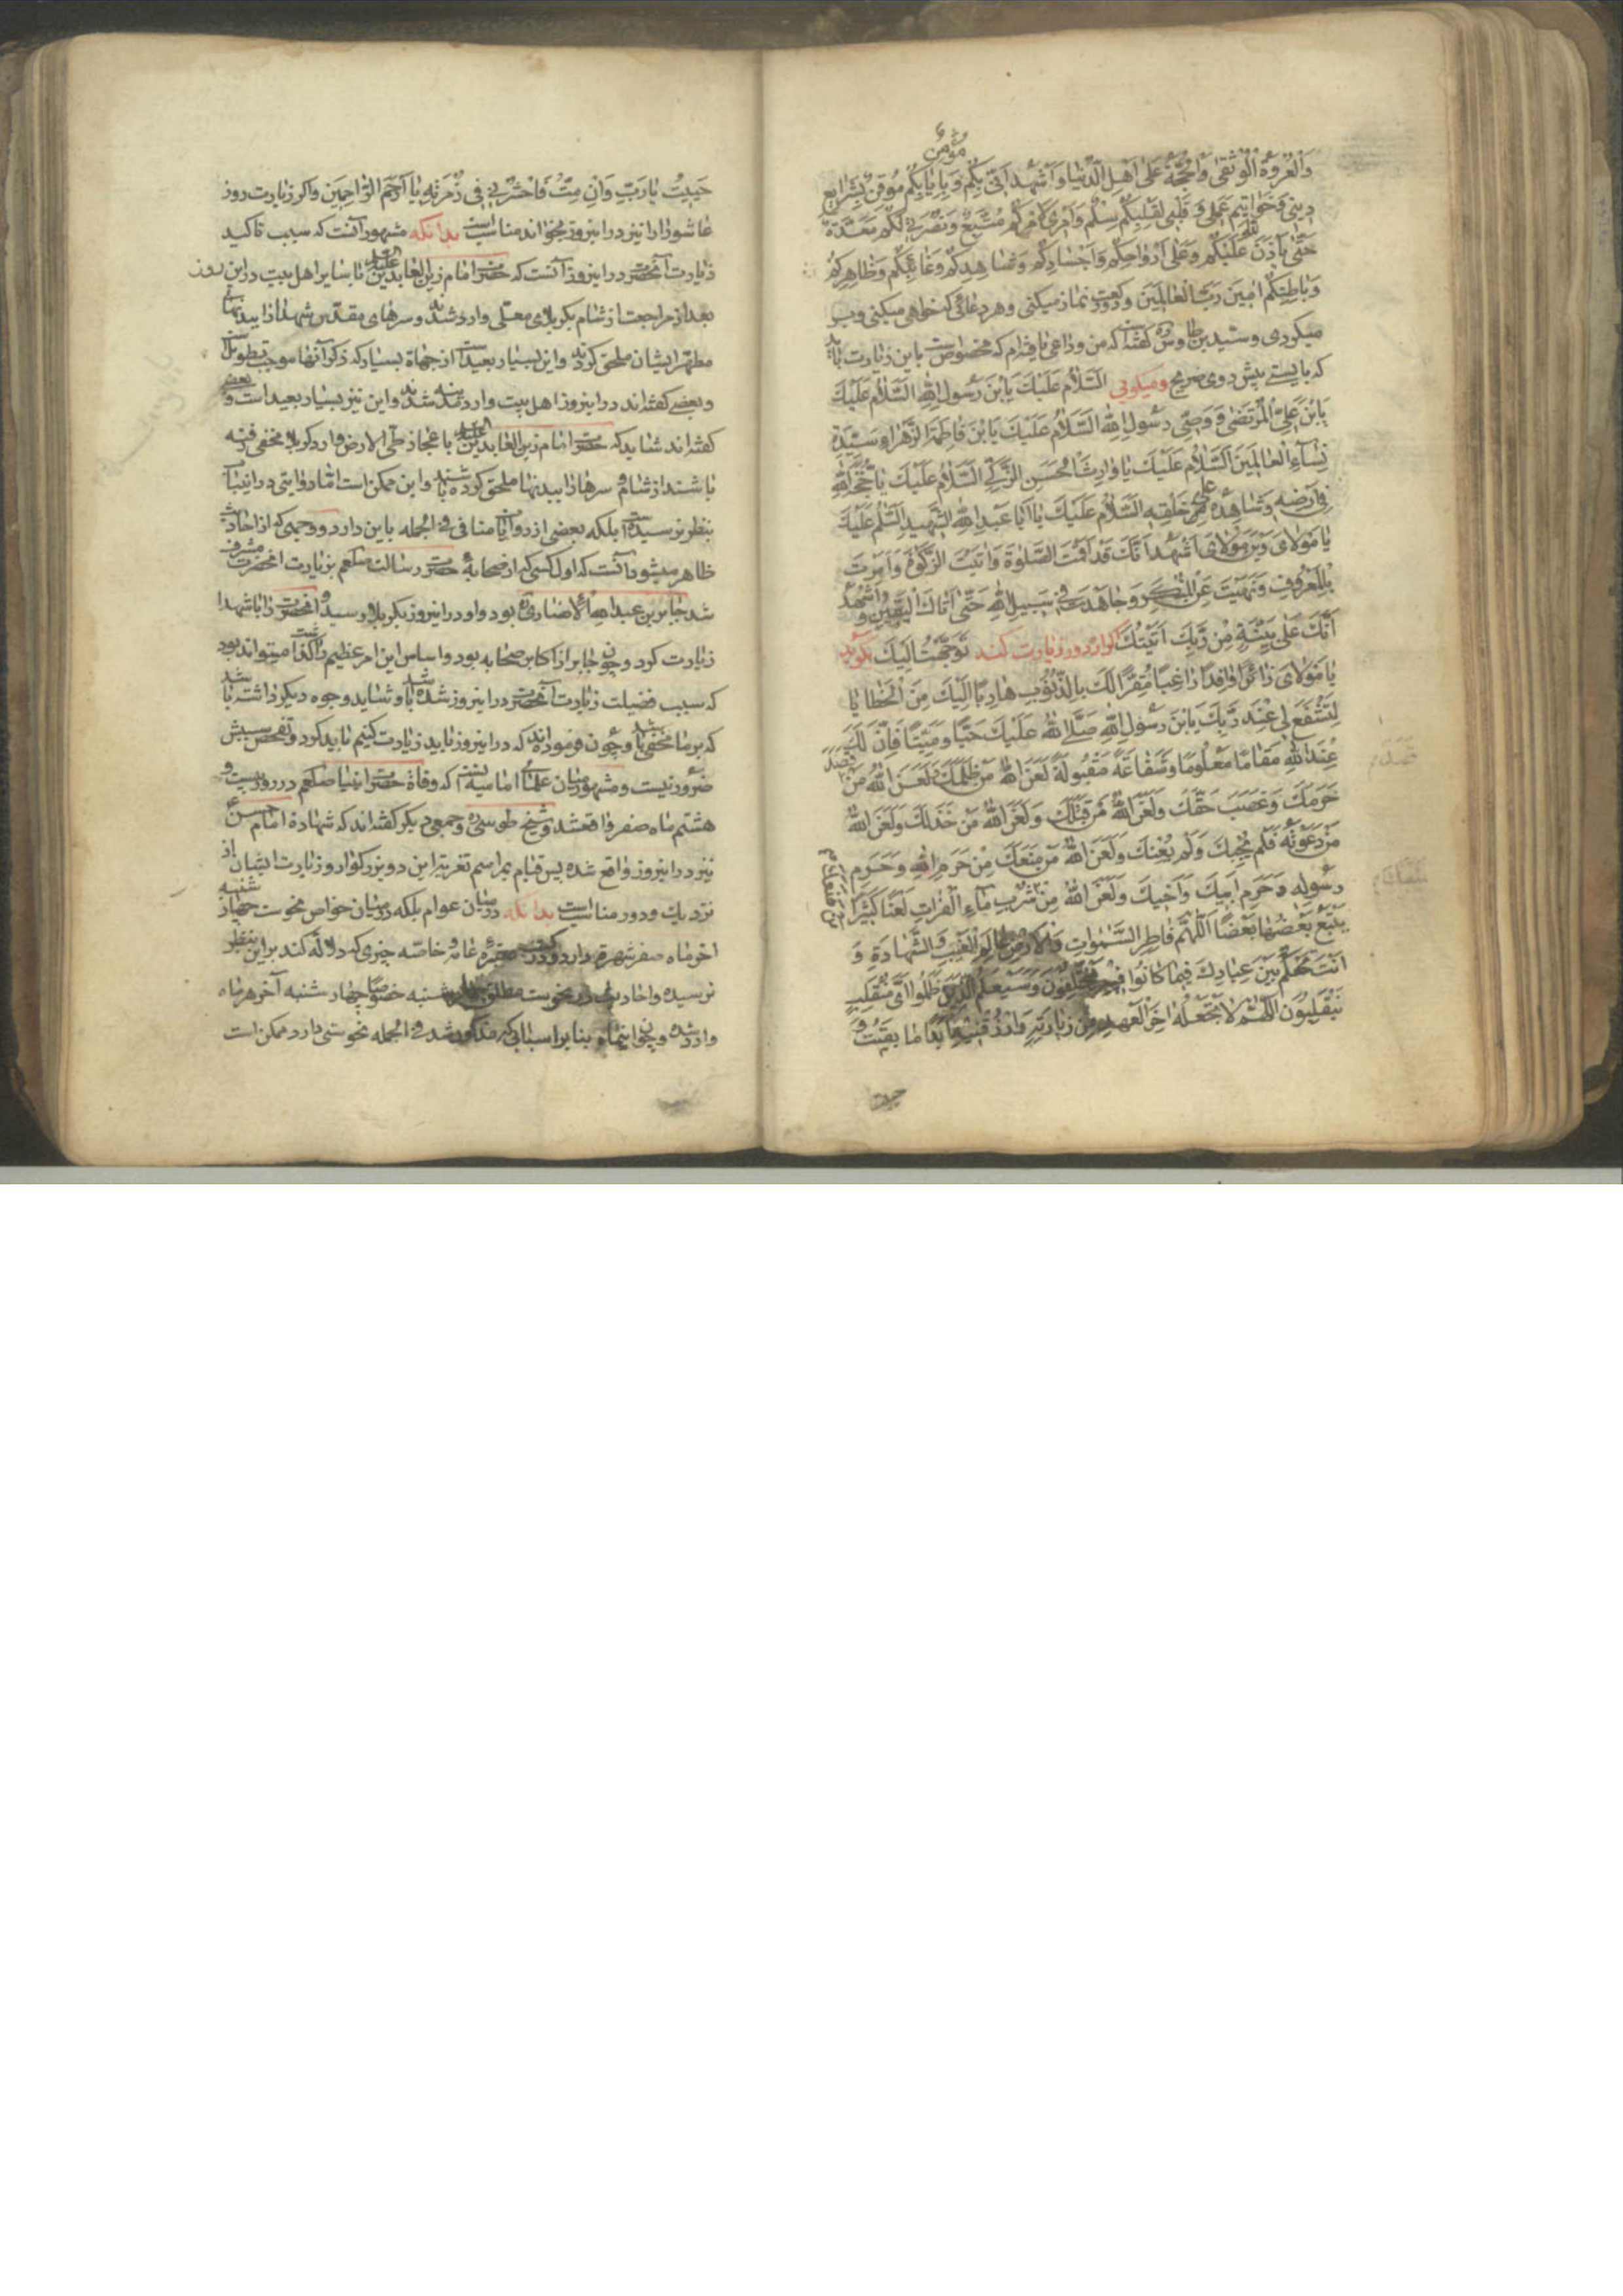 مؤمن
وَالْعُرْوَةُ الْوُثْقٰى وَالْحُجَّةُ عَلٰى اَهْلِ الدُّنْيَا وَاَشْهَدُ اَنّى بِكُمْ وَبِاِيَابِكُمْ مُوقِنٌ بِشَرَايِعِ
دينى وَخَوَاتِيمِ عَمَلى وَقَلْبى لِقَلْبِكُمْ سِلْمٌ وَاَمْرى لِاَمْرِكُمْ مُتَّبِعٌ وَنُصْرَتى لَكُمْ مُعَدَّةٌ
حَتّٰى يَأْذَنَ اللّٰهُ عَلَيْكُمْ وَعَلٰى اَرْوَاحِكُمْ وَاَجْسَادِكُمْ وَشَاهِدِكُمْ وَغَائِبِكُمْ وَظَاهِرِكُمْ
وَبَاطِنِكُمْ امِينَ رَبَّ الْعَالَمِينَ ودو ركعت نماز ميكنى وهر دعائى كه خواهى ميكنى وب
ميكردى وسيد بن طاوس ره گفته كه من وداعى يافته‌ام كه مخصوص است باين زيارت
كه بايستے پيش روى ضريح وميگوئى اَلسَّلَامُ عَلَيْكَ يَابْنَ رَسُولِ اللّٰهِ اَلسَّلَامُ عَلَيْكَ
يَابْنَ عَلِىٍّ الْمُرْتَضٰى وَصِىِّ رَسُولِ اللّٰهِ اَلسَّلَامُ عَلَيْكَ يَابْنَ فَاطِمَةَ الزَّهْرَاءِ سَيِّدَةِ
نِسَآءِ الْعَالَمِينَ اَلسَّلَامُ عَلَيْكَ يَا وَارِثَ الْحَسَنِ الزَّكِىِّ اَلسَّلَامُ عَلَيْكَ يَا حُجَّةَ اللّٰهِ
فى اَرْضِهِ وَشَاهِدَهُ عَلٰى خَلْقِهِ اَلسَّلَامُ عَلَيْكَ يَا اَبَا عَبْدِ اللّٰهِ الشَّهِيدِ اَلسَّلَمُ عَلَيْكَ
يَا مَوْلَاىَ وَبْنَ مَوْلَاىَ اَشْهَدُ اَنَّكَ قَدْ اَقَمْتَ الصَّلٰوةَ وَاتَيْتَ الزَّكٰوةَ وَاَمَرْتَ
بِالْمَعْرُوفِ وَنَهَيْتَ عَنِ الْمُنْكَرِ وَجَاهَدْتَ فى سَبِيلِ اللّٰهِ حَتّٰى اَتَاكَ الْيَقِينُ وَاَشْهَدُ
اَنَّكَ عَلٰى بَيِّنَةٍ مِنْ رَبِّكَ اَتَيْتُكَ گر از دور زيارت كند تَوَجَّهْتُ اِلَيْكَ بگويد
يَا مَوْلَاىَ زَائِرًا وَافِدًا رَاغِبًا مُقِرًّا لَكَ بِالذُّنُوبِ هَارِبًا اِلَيْكَ مِنَ الْخَطَايَا
لِتَشْفَعَ لى عِنْدَ رَبِّكَ يَابْنَ رَسُولِ اللّٰهِ صَلَّے اللّٰهُ عَلَيْكَ حَيًّا وَمَيِّتًا فَاِنَّ لَكَ
عِنْدَ اللّٰهِ مَقَامًا مَعْلُومًا وَشَفَاعَةً مَقْبُولَةً لَعَنَ اللّٰهُ مَنْ ظَلَمَكَ وَلَعَنَ اللّٰهُ مَنْ
حَرَمَكَ وَغَصَبَ حَقَّكَ وَلَعَنَ اللّٰهُ مَنْ قَتَلَكَ وَلَعَنَ اللّٰهُ مَنْ خَذَلَكَ وَلَعَنَ اللّٰهُ
مَنْ دَعَوْتَهُ فَلَمْ يُجِبْكَ وَلَمْ يُعِنْكَ وَلَعَنَ اللّٰهُ مَنْ مَنَعَكَ مِنْ حَرَمِ اللّٰهِ وَحَرَمِ
رَسُولِهِ وَحَرَمِ اَبِيكَ وَاَخِيكَ وَلَعَنَ اللّٰهُ مِنْ شُرْبِ مَآءِ الْفُرَاتِ لَعْنًا كَثِيرًا
يَتْبَعُ بَعْضُهَا بَعْضًا اَللّٰهُمَّ فَاطِرَ السَّمٰوَاتِ وَالْاَرْضِ عَالِمَ الْغَيْبِ وَالشَّهَادَةِ
اَنْتَ تَحْكُمُ بَيْنَ عِبَادِكَ فِيمَا كَانُوا فِيهِ يَخْتَلِفُونَ وَسَيَعْلَمُ الَّذِينَ ظَلَمُوا اَىَّ مُنْقَلَبٍ
يَنْقَلِبُونَ اَللّٰهُمَّ لَا تَجْعَلْهُ اخِرَ الْعَهْدِ مِنْ زِيَارَتِهِ وَارْزُقْنِيهَا اَبَدًا مَا بَقِيتُ وَ
حييت
حَيِيتُ يَا رَبِّ وَاِنْ مِتُّ فَاحْشُرْنى فى زُمْرَتِهِ يَا اَرْحَمَ الرَّاحِمِينَ واگر زيارت روز
عاشورا را نيز در اينروز بخواند مناسب است بدانكه مشهور آنست كه سبب تاكيد
زيارت آنحضرت در اينروز آنست كه حضرت امام زين العابدين عليه السلام با ساير اهل بيت در اين روز
بعد از مراجعت از شام بكربلاى معلى وارد شدند وسرهاى مقدس شهدا را ببدنهاى
مطهر ايشان ملحق كردند واين بسيار بعيد است از جهاة بسيار كه ذكر آنها موجب تطويل است
وبعضے گفته‌اند در اينروز اهل بيت وارد مدينه شدند واين نيز بسيار بعيد است وبعضے
گفته‌اند شايد كه حضرت امام زين العابدين عليه السلام باعجاز طى الارض وارد كربلا مخفى رفته
باشند از شام وسرها را ببدنها ملحق كرده باشند واين ممكن است امّا روايتى در اينباب
بنظر نرسيده است بلكه بعضى از روايات منافى فى الجمله باين دارد ووجهى كه از احاديث
ظاهر ميشود آنست كه اول كسى كه از صحابهٔ حضرت رسالت صلعم بزيارت آنحضرت مشرف
شد جابر بن عبد اللّٰه الانصارى بود واو در اينروز بكربلا رسيد وآنحضرت را با شهدا
زيارت كرد وچون جابر از اكابر صحابه بود واساس اين امر عظيم را گذاشت ميتواند بود
كه سبب فضيلت زيارت آنحضرت در اينروز شده باشد وشايد وجوه ديگر داشته باشد
كه بر ما مخفى باشد وچون فرموده‌اند كه در اينروز بايد زيارت كنيم بايد كرد وتفحص سببش
ضرور نيست ومشهور ميان علماى اماميه آنستكه وفاة حضرت انبيا صلعم در روز بيست و
هشتم ماه صفر واقع شد وشيخ طوسى ره وجمعى ديگر گفته‌اند كه شهادة امام حسن ع
نيز در اينروز واقع شده پس قيام بمراسم تعزيه اين دو بزرگوار وزيارت ايشان از
نزديك ودور مناسب است بدانكه در ميان عوام بلكه در ميان خواص نحوست چهارشنبه
اخر ماه صفر شهرة دارد ودر كتب معتبرهٔ عامه وخاصّه چيزى كه دلالة كند بر اين بنظر
نرسيده واحاديث در نحوست مطلق چهارشنبه خصوصا چهار شنبه آخر هر ماه
وارد شده وچون اينماه بنا بر اسبابى كه مذكور شد فى الجمله نحوستى دارد ممكن است